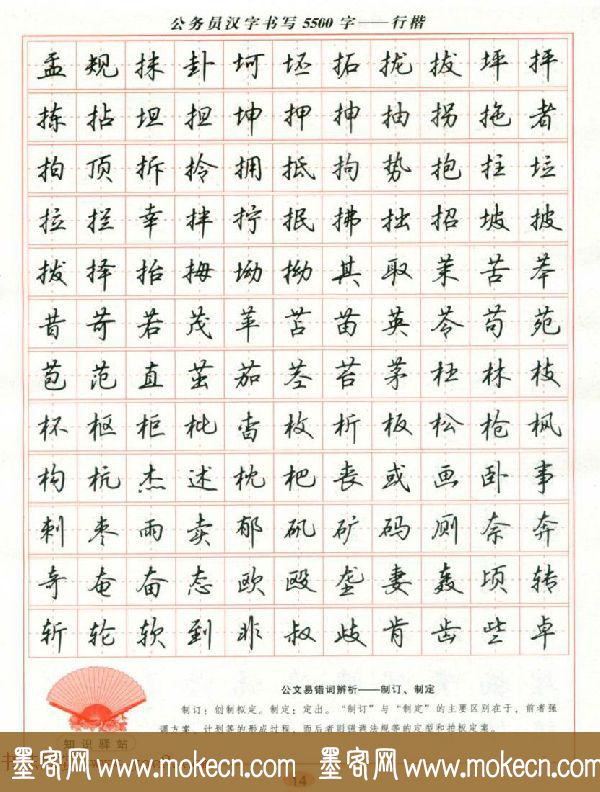 公务员汉字书写5500字——行楷
孟规抹卦坷坯拓拢拔坪抨
拣拈坦担坤押抻抽拐拖者
拍顶拆拎拥抵拘势抱拄垃
拉拦幸拌拧抿拂拙招坡披
拨择抬拇坳拗其取茉苦苯
昔苛若茂苹苫苗英苓苟苑
苞范直茁茄茎苔茅枉林枝
杯枢柜枇杳枚析板松枪枫
构杭杰述枕杷丧或画卧事
刺枣雨卖郁矾矿码厕奈奔
奇奄奋态欧殴垄妻轰顷转
斩轮软到非叔歧肯齿些卓
公文易错词辨析——制订、制定
制订：创制拟定。制定：定出。“制订”与“制定”的主要区别在于，前者强
调方案、计划等的形成过程，而后者则强调法规等的定型和拍板定案。
知识驿站
14
墨客网 www.mokecn.com 墨客网 www.mokecn.com